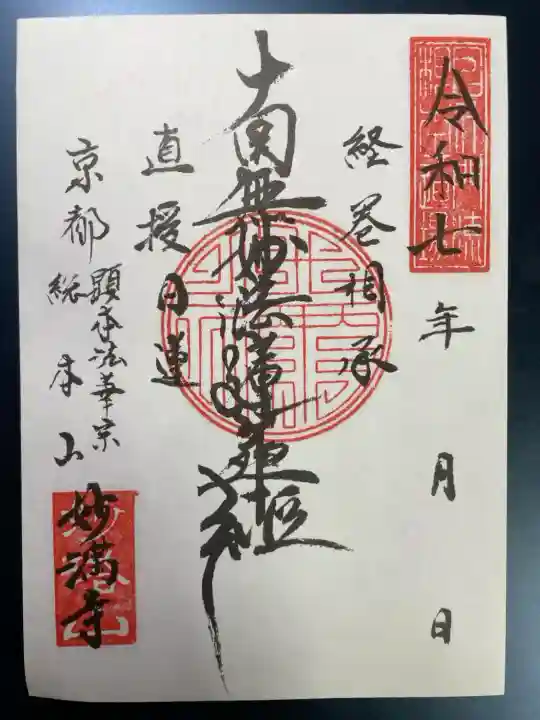 令和七年 月 日
経巻相承
南無妙法蓮華経
直授日蓮
京都
顕本法華宗
総本山
妙満寺